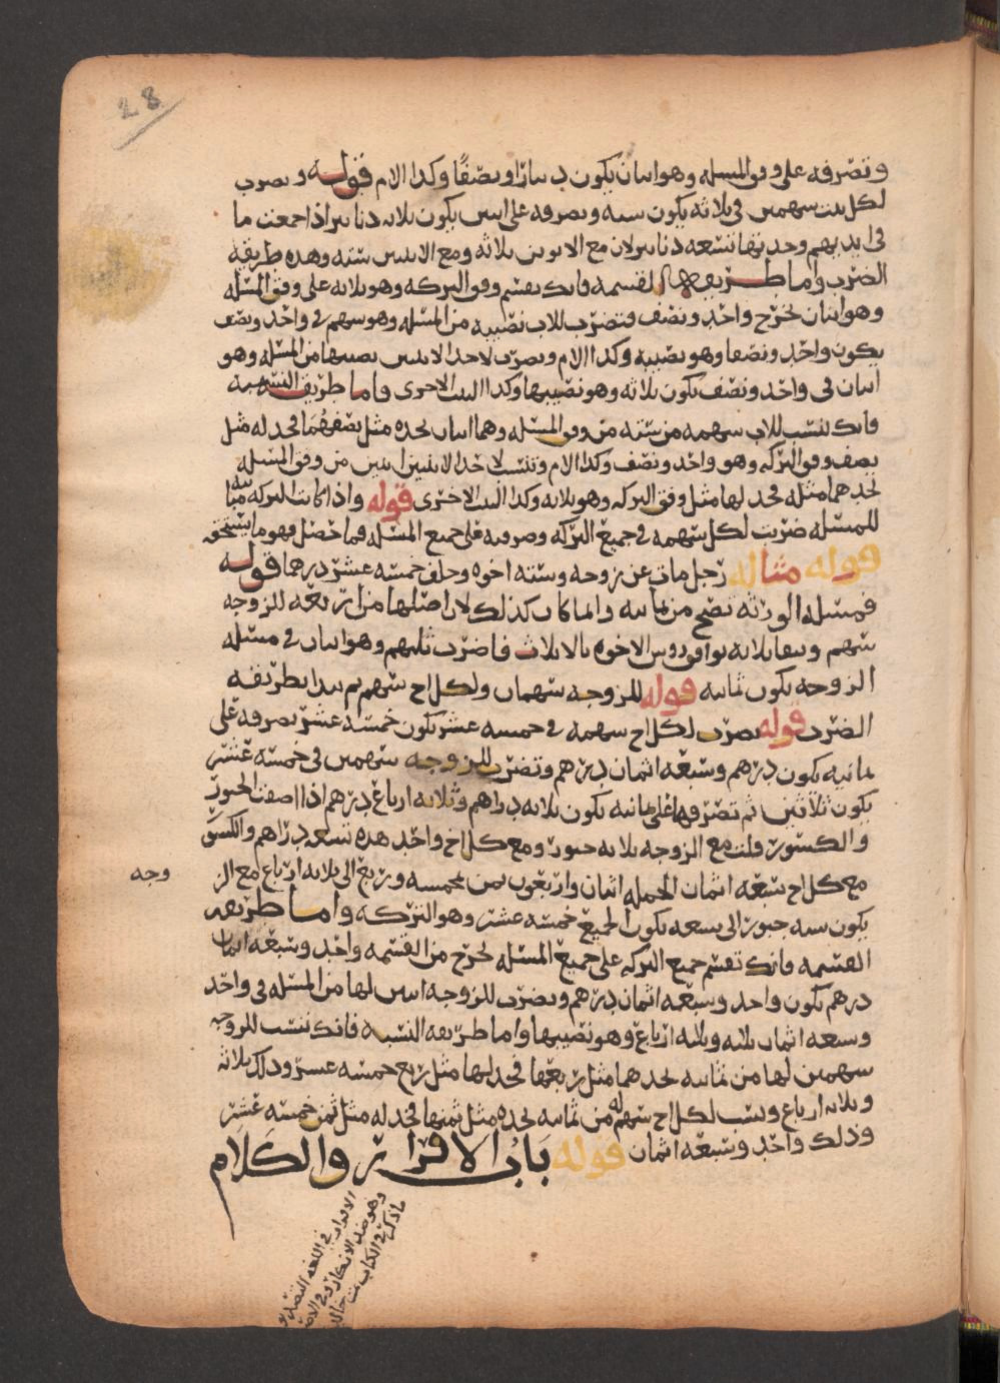 28
وتصرفه على وفق المسله وهو اىىان يكون دينارا ونصفا وكذا الام قوله وىصرب
لكل بنت سهمين في ثلاثه يكون سته وىصرفه على اىىىن يكون ثلاثه دنانىر اذا جمعت ما
في ايديهم وجدتها تسعه دنانير لان مع الابوين ثلاثه ومع الابنتين سته وهذه طريقة
الضرب واما طريقة القسمه فانك تقسم وفق التركه وهو ثلاثه على وفق المسله
وهو اىنان يخرج واحد ونصف فتضرب للاب نصيبه من المسله وهو سهم في واحد ونصف
يكون واحد ونصفا وهو نصيبه وكذا الام وتضرب لاحدا الابنتين نصيبها من المسله وهو
اىنان في واحد ونصف يكون ثلاثه وهو نصيبها وكذا البنت الاخرى واما طريقة النسبه
فانك تنسب للاب سهمه من سته من وفق المسله وهما اىنان تجده مثل نصفهما فخد له مثل
نصف وفق التركه وهو واحد ونصف وكذا الام وتنسب لاحدا الابنتين اىنين من وفق المسله
تجدهما مثله فخد لها مثل وفق التركه وهو ثلاثه وكذا البنت الاخرى قوله واذا كانت التركه مباينه
للمسله ضربت لكل سهمه في جميع التركه وصرفته على جميع المسله فما حصل فهو ما يستحق
قوله مثاله رجل مات عن زوجه وسته اخوه وخلف خمسه عشر درهما قوله
فمسله الورثه تصح من ثمانيه وانما كان كذلك لان اصلها من اربعه للزوجه
سهم وىىقا ثلاثه توافق روس الاخوه بالاثلاث فاضرب ثلثهم وهو اىنان في مسله
الزوجه يكون ثمانيه قوله للزوجه سهمان ولكل اخ سهم ثم نبدا بطريقه
الضرب قوله نضرب لكل اخ سهمه في خمسه عشر يكون خمسه عشر تصرفه على
ثمانيه يكون درهم وسبعه اثمان درهم وتضرب للزوجه سهمين في خمسه عشر
يكون ثلاثين ثم تصرفها على ثمانيه يكون ثلاثه دراهم وثلاثه ارباع درهم اذا اضفت الجبور
والكسور قلت مع الزوجه ثلاثه جبور ومع كل اخ واحد هذه تسعه دراهم والكسور
مع كل اخ سبعه اثمان الجمله اثنان واربعون ثمن بخمسه وربع الى ثلاثه ارباع مع الز
وجه
يكون سته جبور الى تسعه يكون الجميع خمسه عشر وهو التركه واما طريقه
القسمه فانك تقسم جميع التركه على جميع المسله يخرج من القسمه واحد وسبعه اثمان
درهم يكون واحد وسبعه اثمان درهم وىضرب للزوجه اثنين لها من المسله في واحد
وسبعه اثمان ثلاثه وثلاثه ارباع وهو نصيبها واما طريقه النسبه فانك تنسب للزوجه
سهمين لها من ثمانيه تجدهما مثل ربعها فخد لها مثل ربع خمسه عشر وذلك ثلاثه
وثلاثه ارباع وتنسب لكل اخ سهم له من ثمانيه تجده مثل ثمنها فخد له مثل ثمن خمسه عشر
وذلك واحد وسبعه اثمان قوله باب الاقرار والكلام
الاقرار في اللغه التصديق
وهو ضد الانكار وفي
ما ذكر في الكتاب